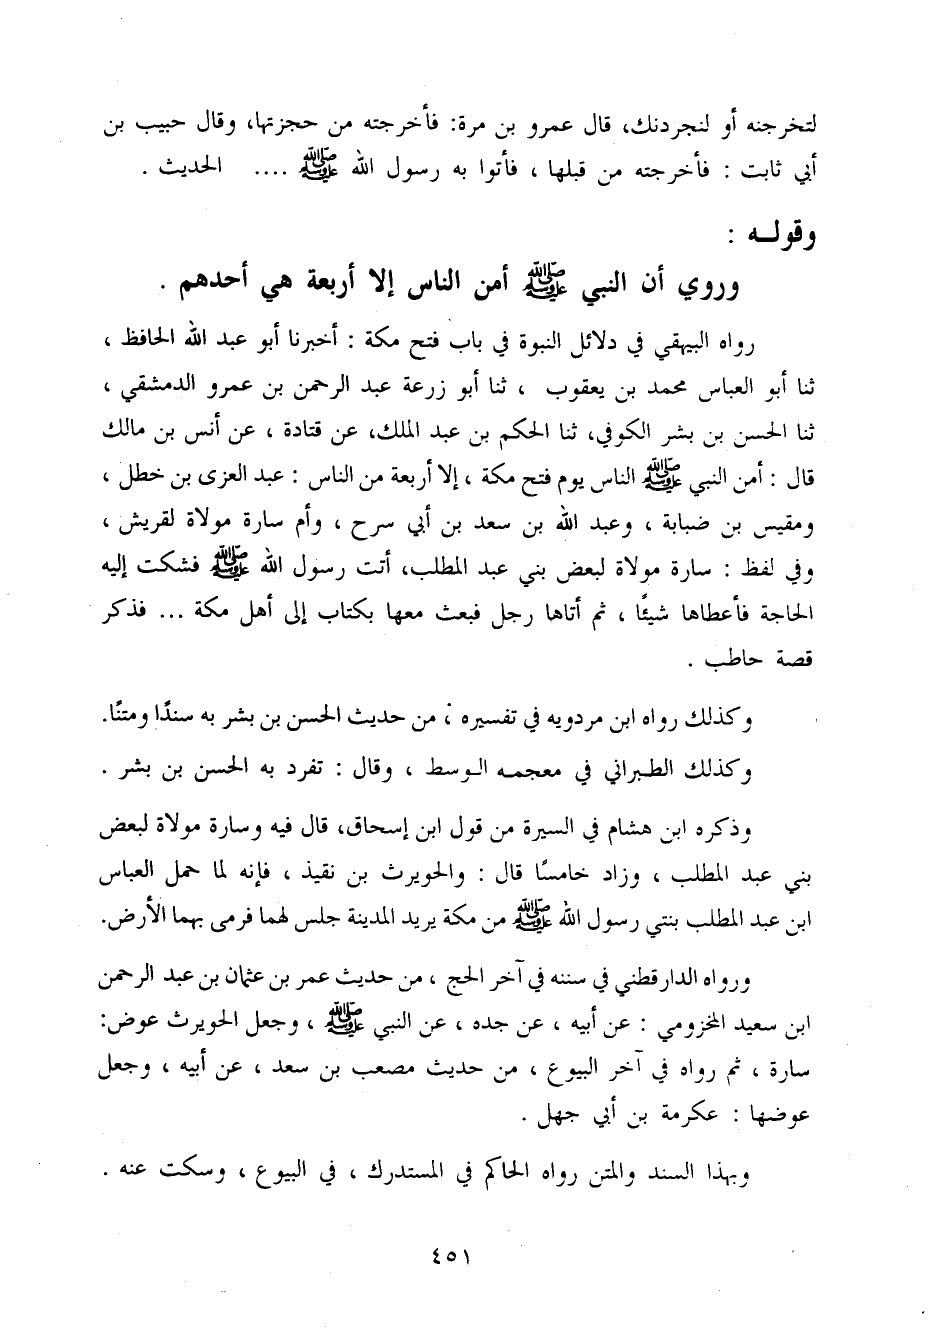 لتخرجنه أو لنجردنك، قال عمرو بن مرة: فأخرجته من حجزتها، وقال حبيب بن
أبي ثابت : فأخرجته من قبلها ، فأتوا به رسول الله ﷺ .... الحديث .
وقولـه :
وروي أن النبي ﷺ أمن الناس إلا أربعة هي أحدهم .
رواه البيهقي في دلائل النبوة في باب فتح مكة : أخبرنا أبو عبد الله الحافظ ،
ثنا أبو العباس محمد بن يعقوب ، ثنا أبو زرعة عبد الرحمن بن عمرو الدمشقي ،
ثنا الحسن بن بشر الكوفي، ثنا الحكم بن عبد الملك، عن قتادة ، عن أنس بن مالك
قال : أمن النبي ﷺ الناس يوم فتح مكة ، إلا أربعة من الناس : عبد العزى بن خطل ،
ومقيس بن ضبابة ، وعبد الله بن سعد بن أبي سرح ، وأم سارة مولاة لقريش ،
وفي لفظ : سارة مولاة لبعض بني عبد المطلب، أتت رسول الله ﷺ فشكت إليه
الحاجة فأعطاها شيئًا ، ثم أتاها رجل فبعث معها بكتاب إلى أهل مكة ... فذكر
قصة حاطب .
وكذلك رواه ابن مردويه في تفسيره ، من حديث الحسن بن بشر به سندًا ومتنًا.
وكذلك الطبراني في معجمه الوسط ، وقال : تفرد به الحسن بن بشر .
وذكره ابن هشام في السيرة من قول ابن إسحاق، قال فيه وسارة مولاة لبعض
بني عبد المطلب ، وزاد خامسًا قال : والحويرث بن نقيذ ، فإنه لما حمل العباس
ابن عبد المطلب بنتي رسول الله ﷺ من مكة يريد المدينة جلس لهما فرمى بهما الأرض.
ورواه الدارقطني في سننه في آخر الحج ، من حديث عمر بن عثمان بن عبد الرحمن
ابن سعيد المخزومي : عن أبيه ، عن جده ، عن النبي ﷺ ، وجعل الحويرث عوض:
سارة ، ثم رواه في آخر البيوع ، من حديث مصعب بن سعد ، عن أبيه ، وجعل
عوضها : عكرمة بن أبي جهل .
وبهذا السند والمتن رواه الحاكم في المستدرك ، في البيوع ، وسكت عنه .
٤٥١